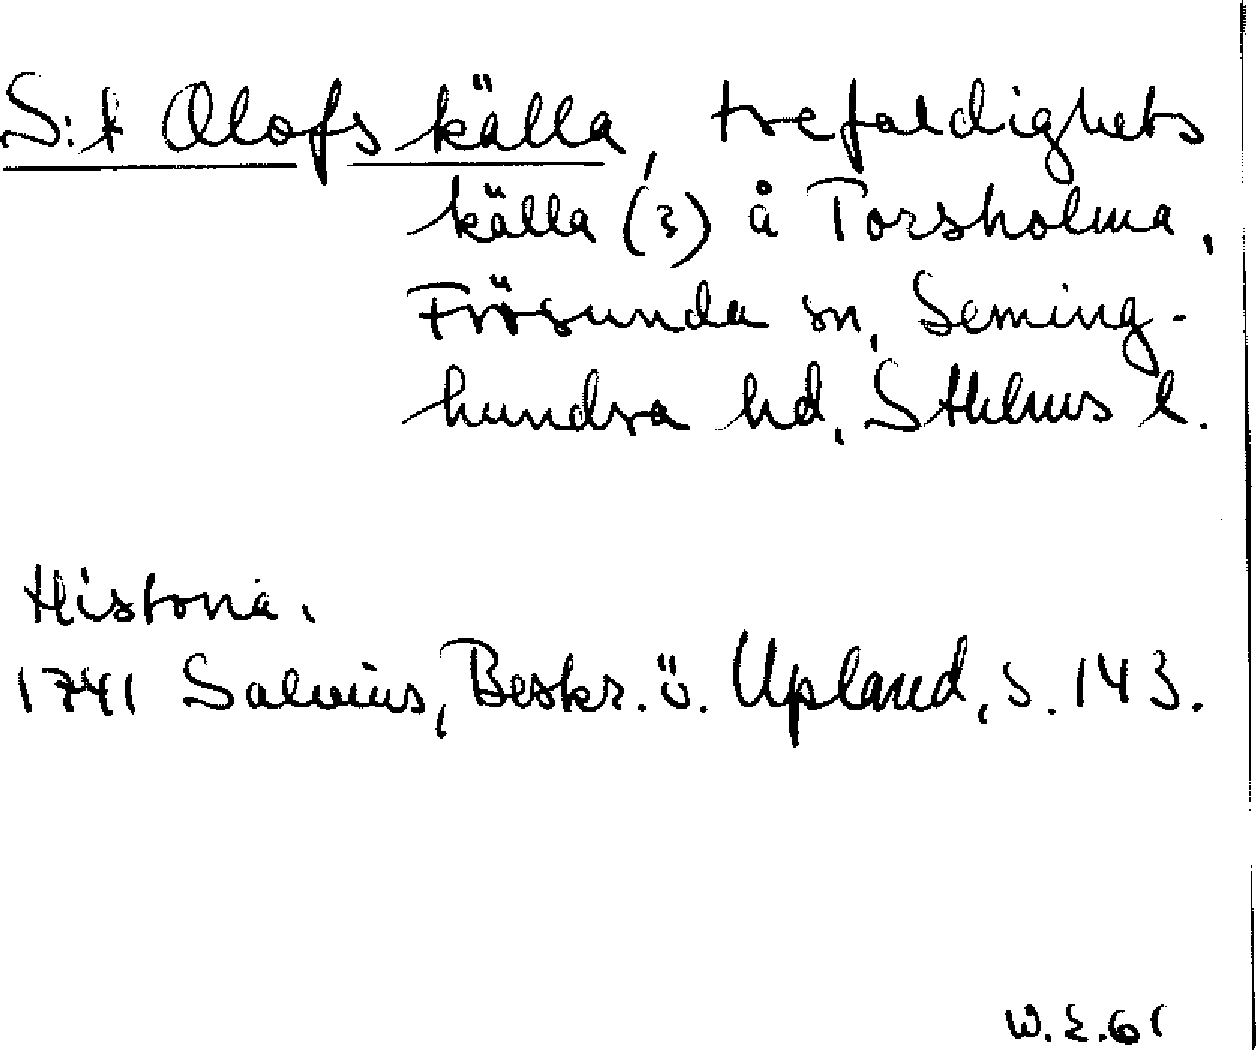 S:t Olofs källa, trefaldighets
källa (?) å Torsholma,
Frösunda sn, Seming-
hundra hd, Sthlms l.
Historia.
1741 Salvius, Beskr. ö. Upland, s. 143.
W.E.61